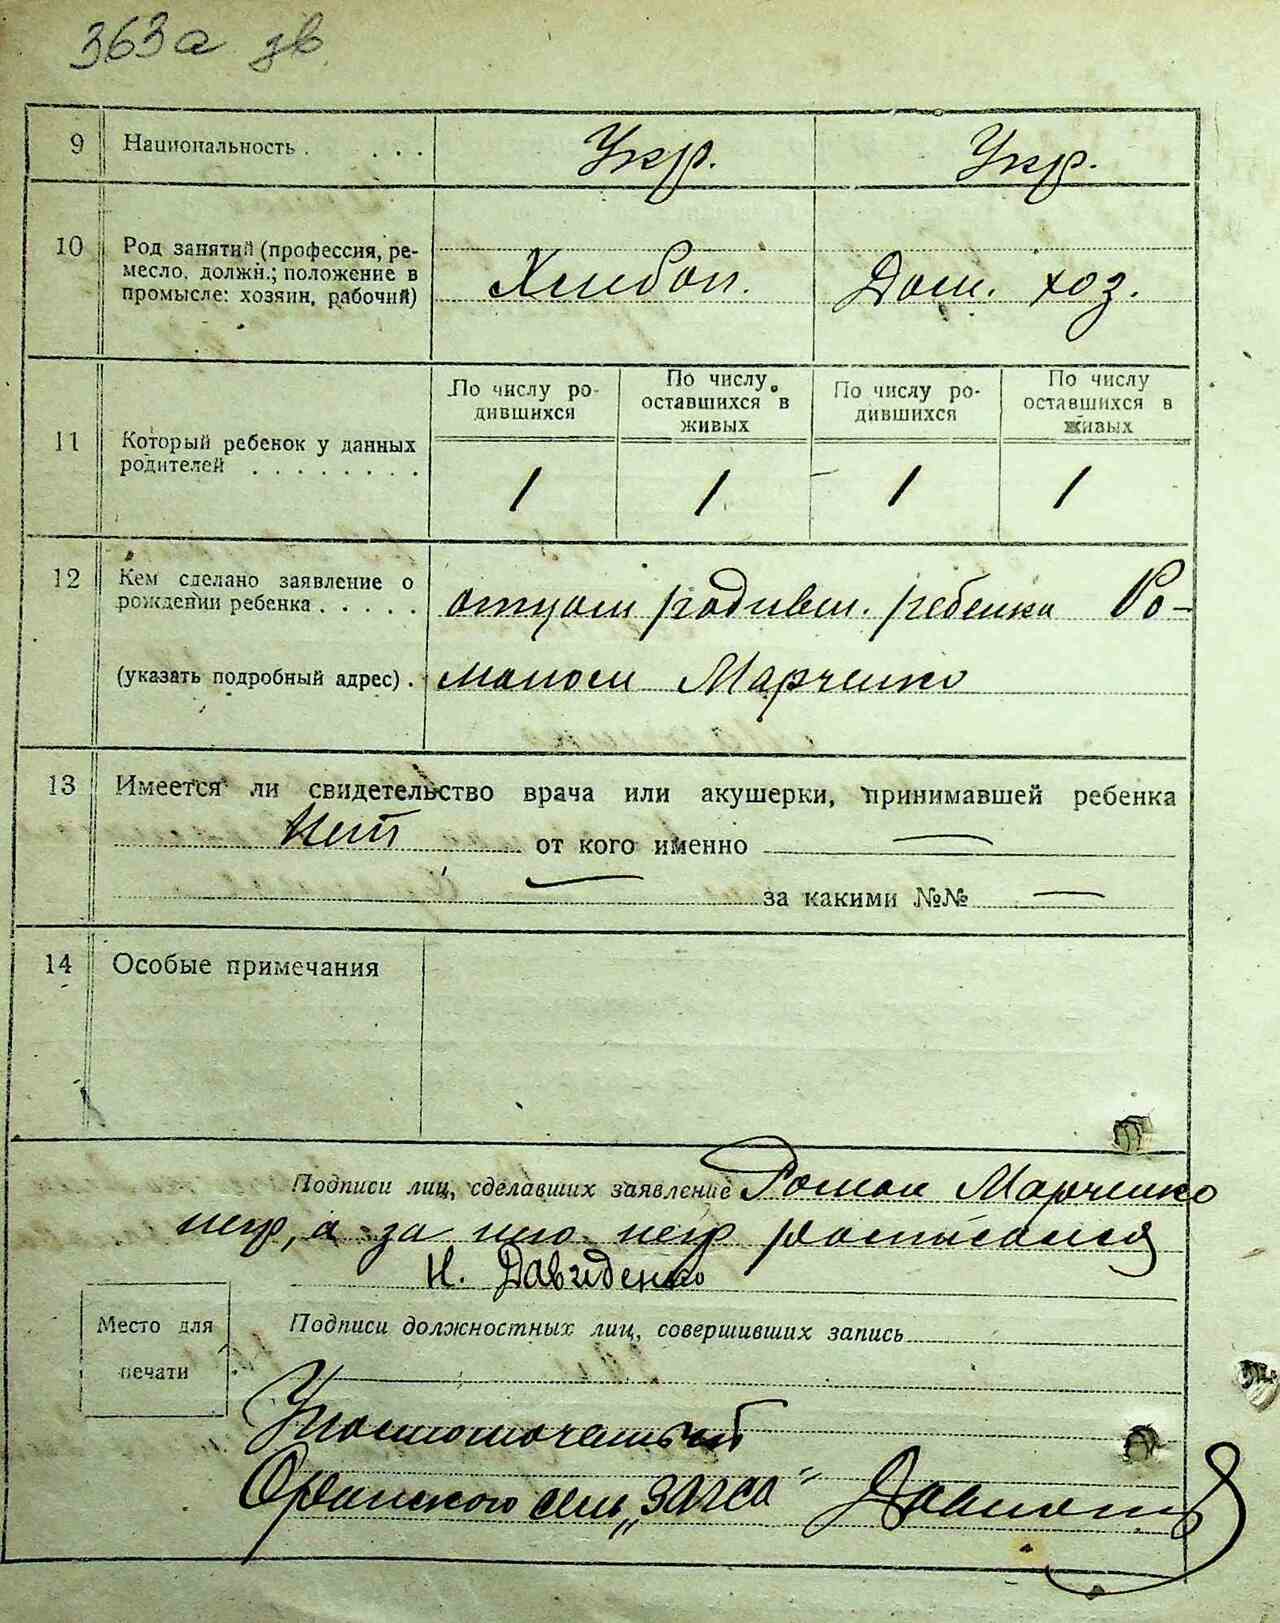 363а зв
9 Национальность . . . . Укр. Укр.
10 Род занятий (профессия, ре-
месло, должн.; положение в
промысле: хозяин, рабочий)
Хлибоп. Дом. хоз.
По числу ро-
дившихся
По числу
оставшихся в
живых
По числу ро-
дившихся
По числу
оставшихся в
живых
11 Который ребенок у данных
родителей . . . . . . . .
1 1 1 1
12 Кем сделано заявление о
рождении ребенка . . . . .
отцом родивш. ребенка Ро-
(указать подробный адрес) . маном Марченко
13 Имеется ли свидетельство врача или акушерки, принимавшей ребенка
Нет от кого именно —
— за какими №№ —
14 Особые примечания
Подписи лиц, сделавших заявление Роман Марченко
негр, а за него негр росписался
Н. Давиденко
Место для
печати
Подписи должностных лиц, совершивших запись
Уполномоченный
сель „загса“